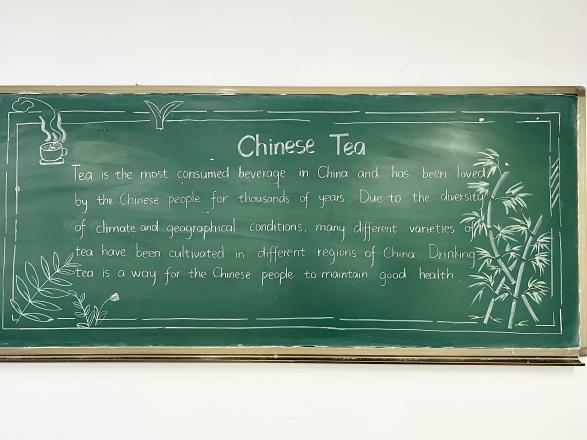 Chinese Tea
Tea is the most consumed beverage in China and has been loved
by the Chinese people for thousands of years. Due to the diversity
of climate and geographical conditions, many different varieties of
tea have been cultivated in different regions of China. Drinking
tea is a way for the Chinese people to maintain good health.